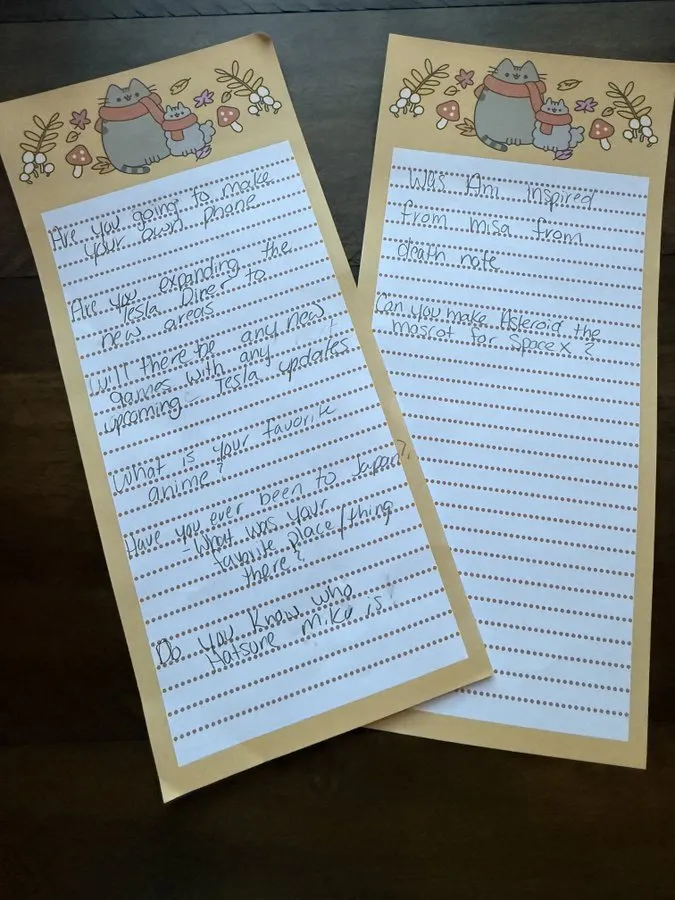 Are you going to make
your own phone
Are you expanding the
Tesla Diner to
new areas
Will there be any new
games with any
upcoming Tesla updates
What is your favorite
anime?
Have you ever been to Japan?
- What was your
favorite place/thing
there?
Do you know who
Hatsune Miku is
Was Ani inspired
from misa from
death note
Can you make Asteroid the
mascot for SpaceX?